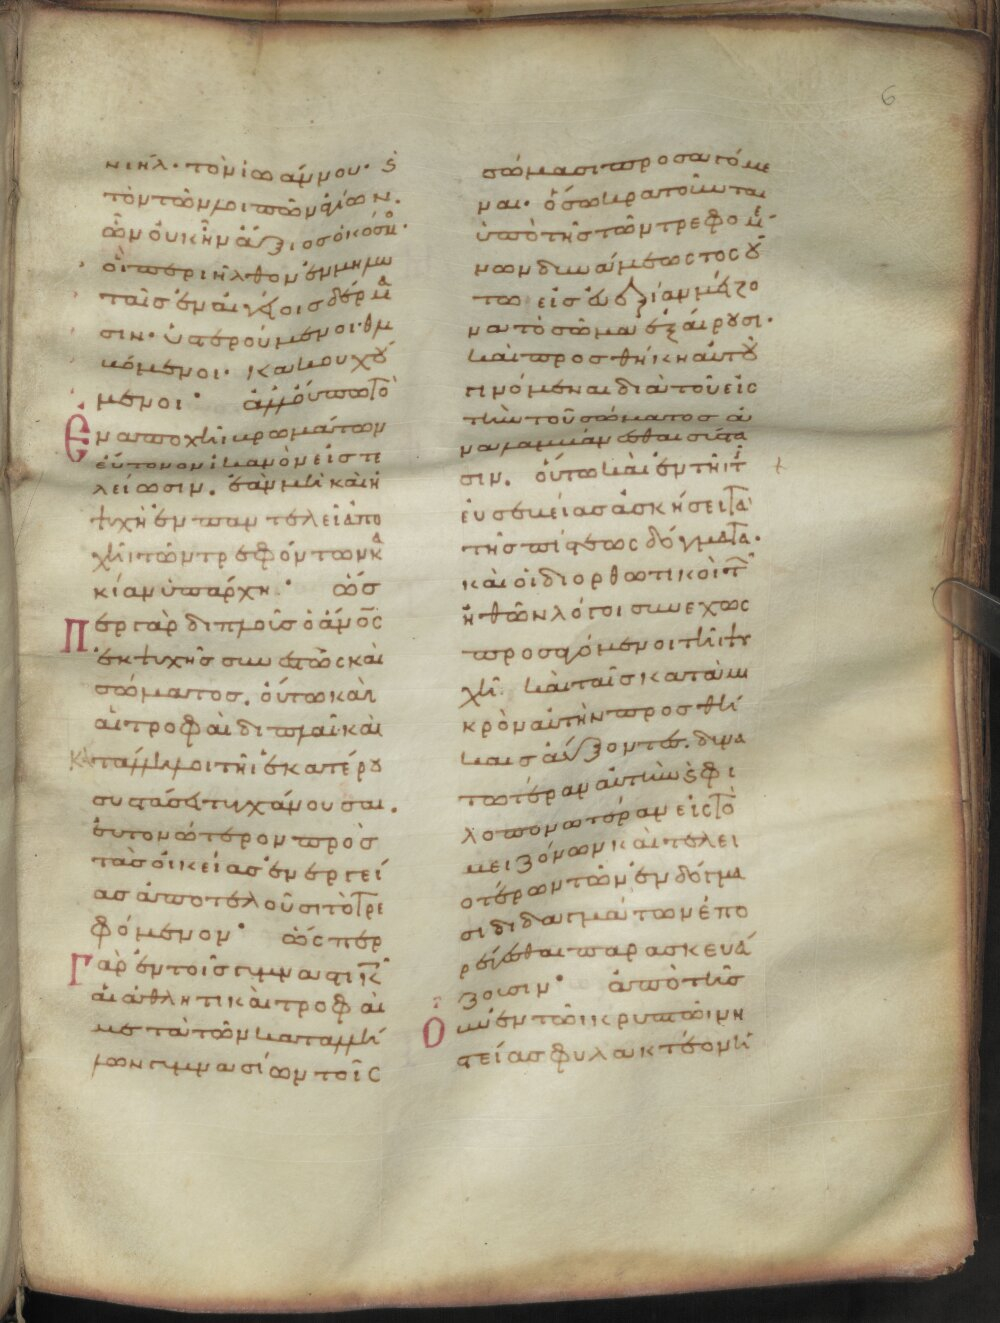 6
νιήλ· τὸν ἰωάννου· ϛ
τὸν τῶν λοιπῶν ἁγίων.
ὧν οὐκ ἦν ἄξιος ὁ κόσμ(ος)·
οἳ περιῆλθον ἐν μηλω
ταῖς ἐν αἰγείοις δέρμα
σιν· ὑστερούμενοι· θλι
βόμενοι· κακουχού
μενοι· ἀλλ' οὔπω τὸ
ἓν ἀποχῆι βρωμάτων
εὔτονον ἱκανὸν εἰς τε
λείωσιν. ἐὰν μὴ καὶ ἡ
ψυχὴ ἐν παντελεῖ ἀπο
χῆι τῶν τρεφόντων κα
κίαν ὑπάρχῃ· ὥσ
περ γὰρ διπλοῖς ὁ ἄν(θρωπ)ος
ἐκ ψυχῆς συνεστὼς καὶ
σώματος. οὕτω καὶ
αἱ τροφαὶ διπλαῖ· καὶ
κατάλληλοι τῆι ἑκατέρου
συστάσει τυγχάνουσαι.
εὐτονώτερον πρὸς
τὰς οἰκείας ἐνεργεί
ας ἀποτελοῦσι τὸ τρε
φόμενον· ὥσπερ
γὰρ ἐν τοῖς γυμναστικ(οῖς)
αἱ ἀθλητικαὶ τροφαὶ
μετὰ τῶν καταλλή
λων γυμνασίων τοῖς
σώμασι προσαγόμε
ναι. ὅσω κρατοῦνται
ὑπὸ τῆς τῶν τρεφομέ
νων δυνάμεως τοσού
τω εἰς εὐεξίαν μείζο
να τὸ σῶμα ἐξαίρουσι·
καὶ προσθήκη αὐτοῦ
γινόμεναι διὰ τοῦ εἰς
τὴν τοῦ σώματος ἀ
ναλαμβάνεσθαι σύστα
σιν. οὕτω καὶ ἐν τῆι τ(ῆς)
εὐσεβείας ἀσκήσει τὰ
τῆς πίστεως δόγματα·
καὶ οἱ διορθωτικοὶ τ(ῶν)
ἠθῶν λόγοι συνεχῶς
προσαγόμενοι τῆι ψυ
χῆι καὶ ταῖς κατὰ μι
κρὸν αὐτὴν προσθή
καις αὔξοντες. δυνα
τωτέραν αὐτὴν ϛ φι
λοπονωτέραν εἰς τὸ
μειζόνων καὶ τελει
οτέρων τῶν ἐν δόγμα
σι διδαγμάτων ἐπο
ρέγεσθαι παρασκευά
ζουσιν· ἀπὸ τῆς
οὖν ἐν τῶι κρυπτῶι νη
στείας φυλακτέον ἡ